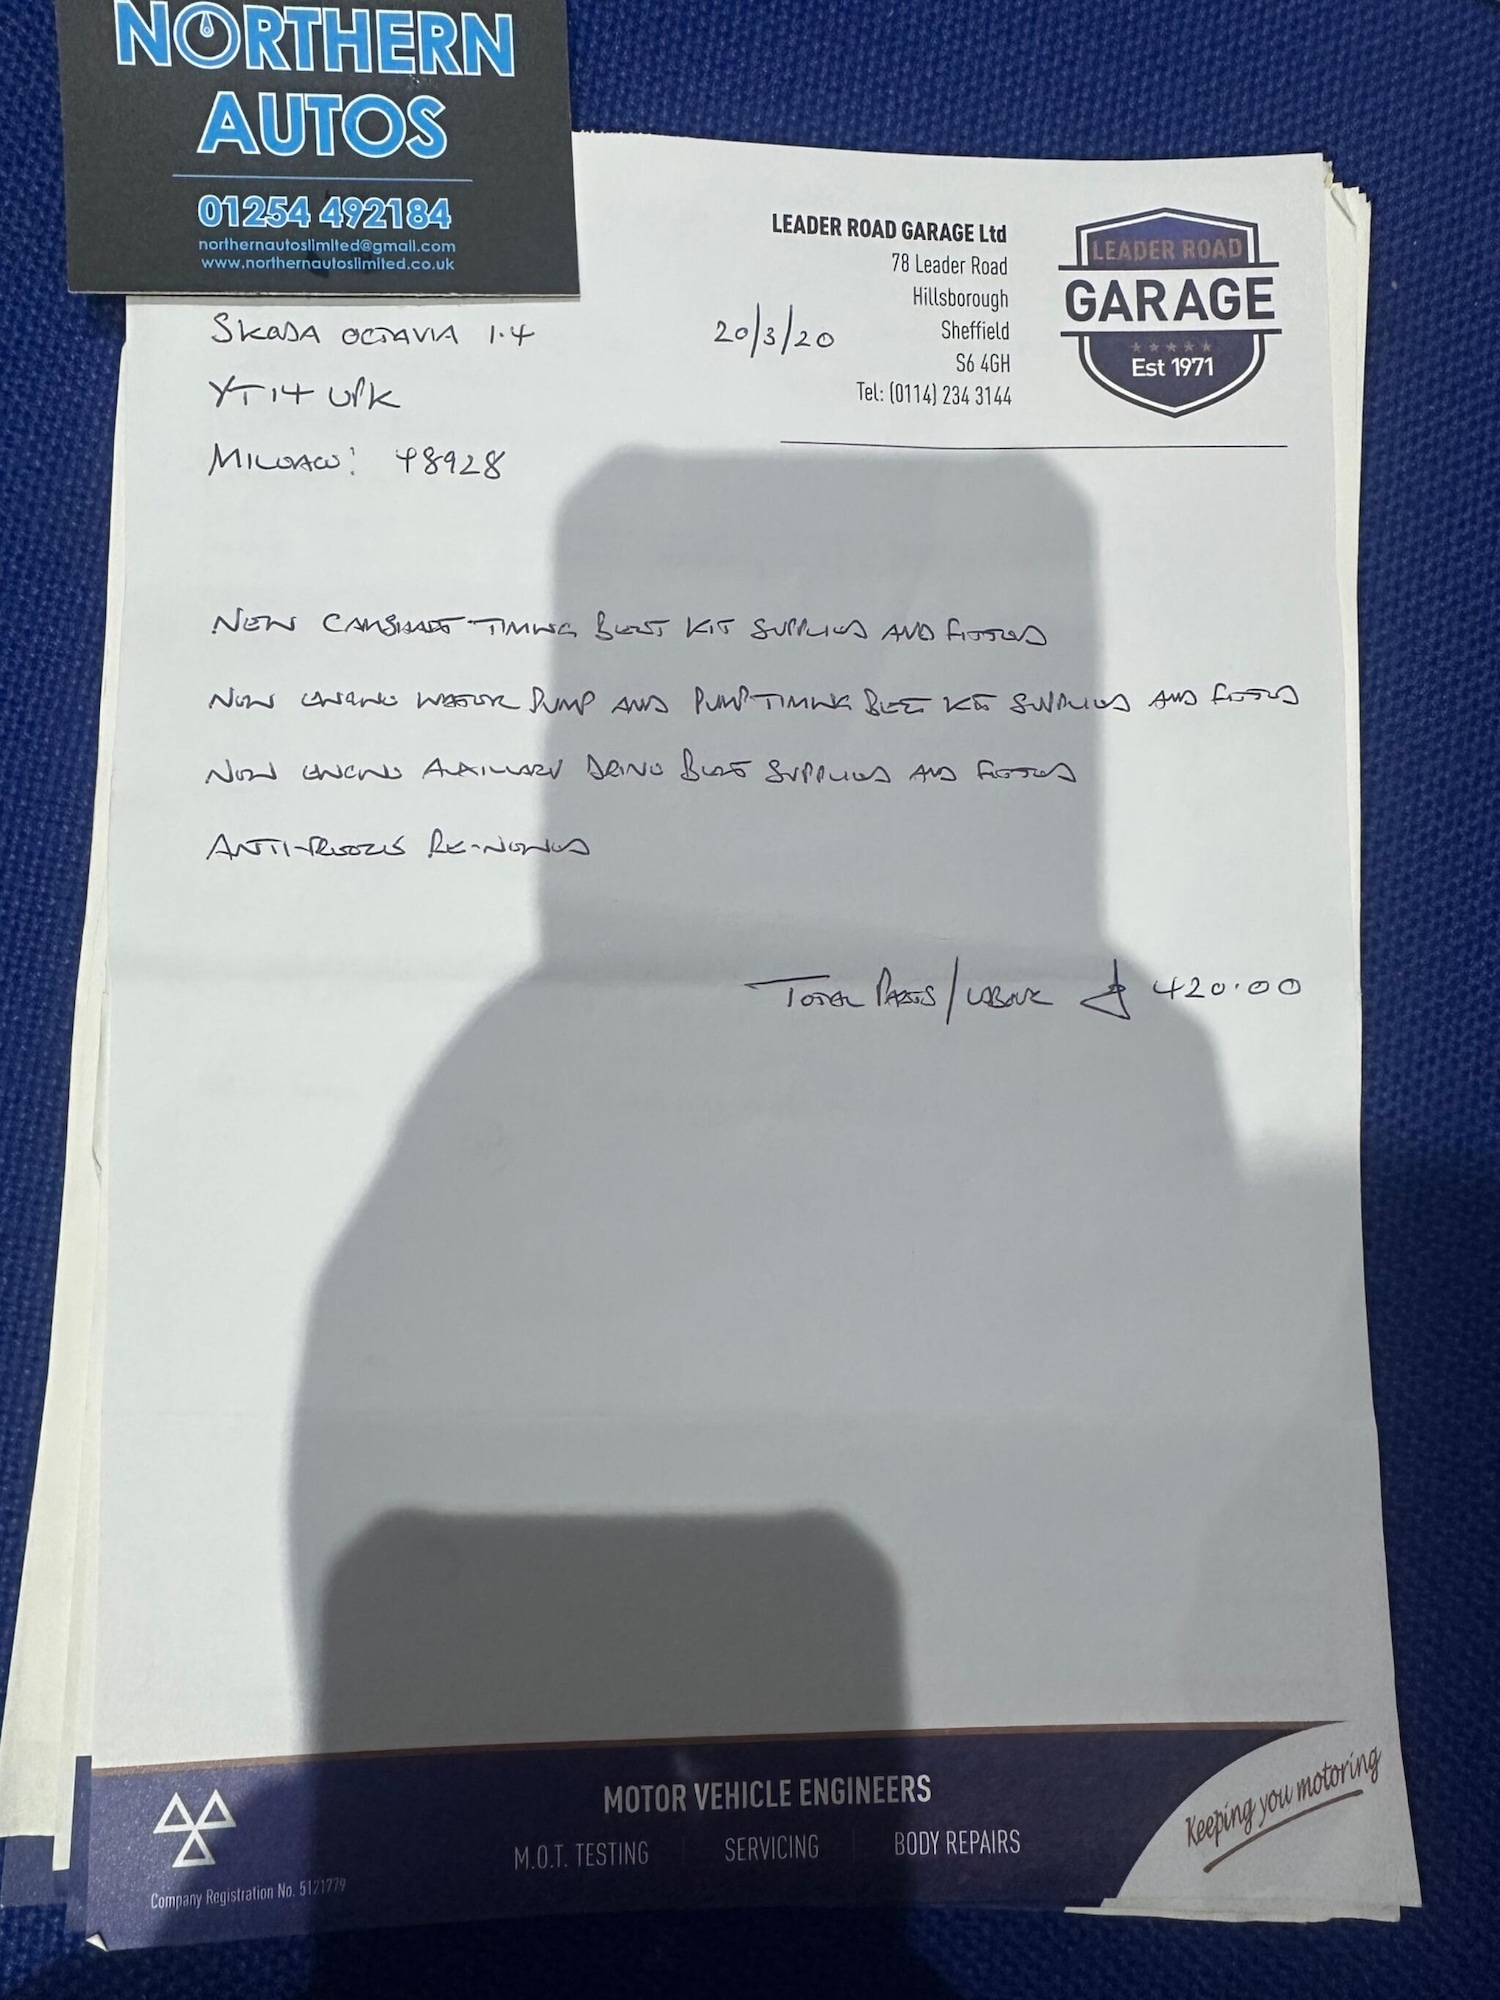 NORTHERN
AUTOS
01254 492184
northernautoslimited@gmail.com
www.northernautoslimited.co.uk
LEADER ROAD GARAGE Ltd
78 Leader Road
Hillsborough
Sheffield
S6 4GH
Tel: (0114) 234 3144
LEADER ROAD
GARAGE
Est 1971
SKODA OCTAVIA 1.4
20/3/20
YT14 UPK
MILEAGE: 48928
NEW CAMSHAFT TIMING BELT KIT SUPPLIED AND FITTED
NEW ENGINE WATER PUMP AND PUMP TIMING BELT KIT SUPPLIED AND FITTED
NEW ENGINE AUXILIARY DRIVE BELT SUPPLIED AND FITTED
ANTI-FREEZE RE-NEWED
TOTAL PARTS/LABOUR £ 420.00
MOTOR VEHICLE ENGINEERS
M.O.T. TESTING
SERVICING
BODY REPAIRS
Keeping you motoring
Company Registration No. 5121779